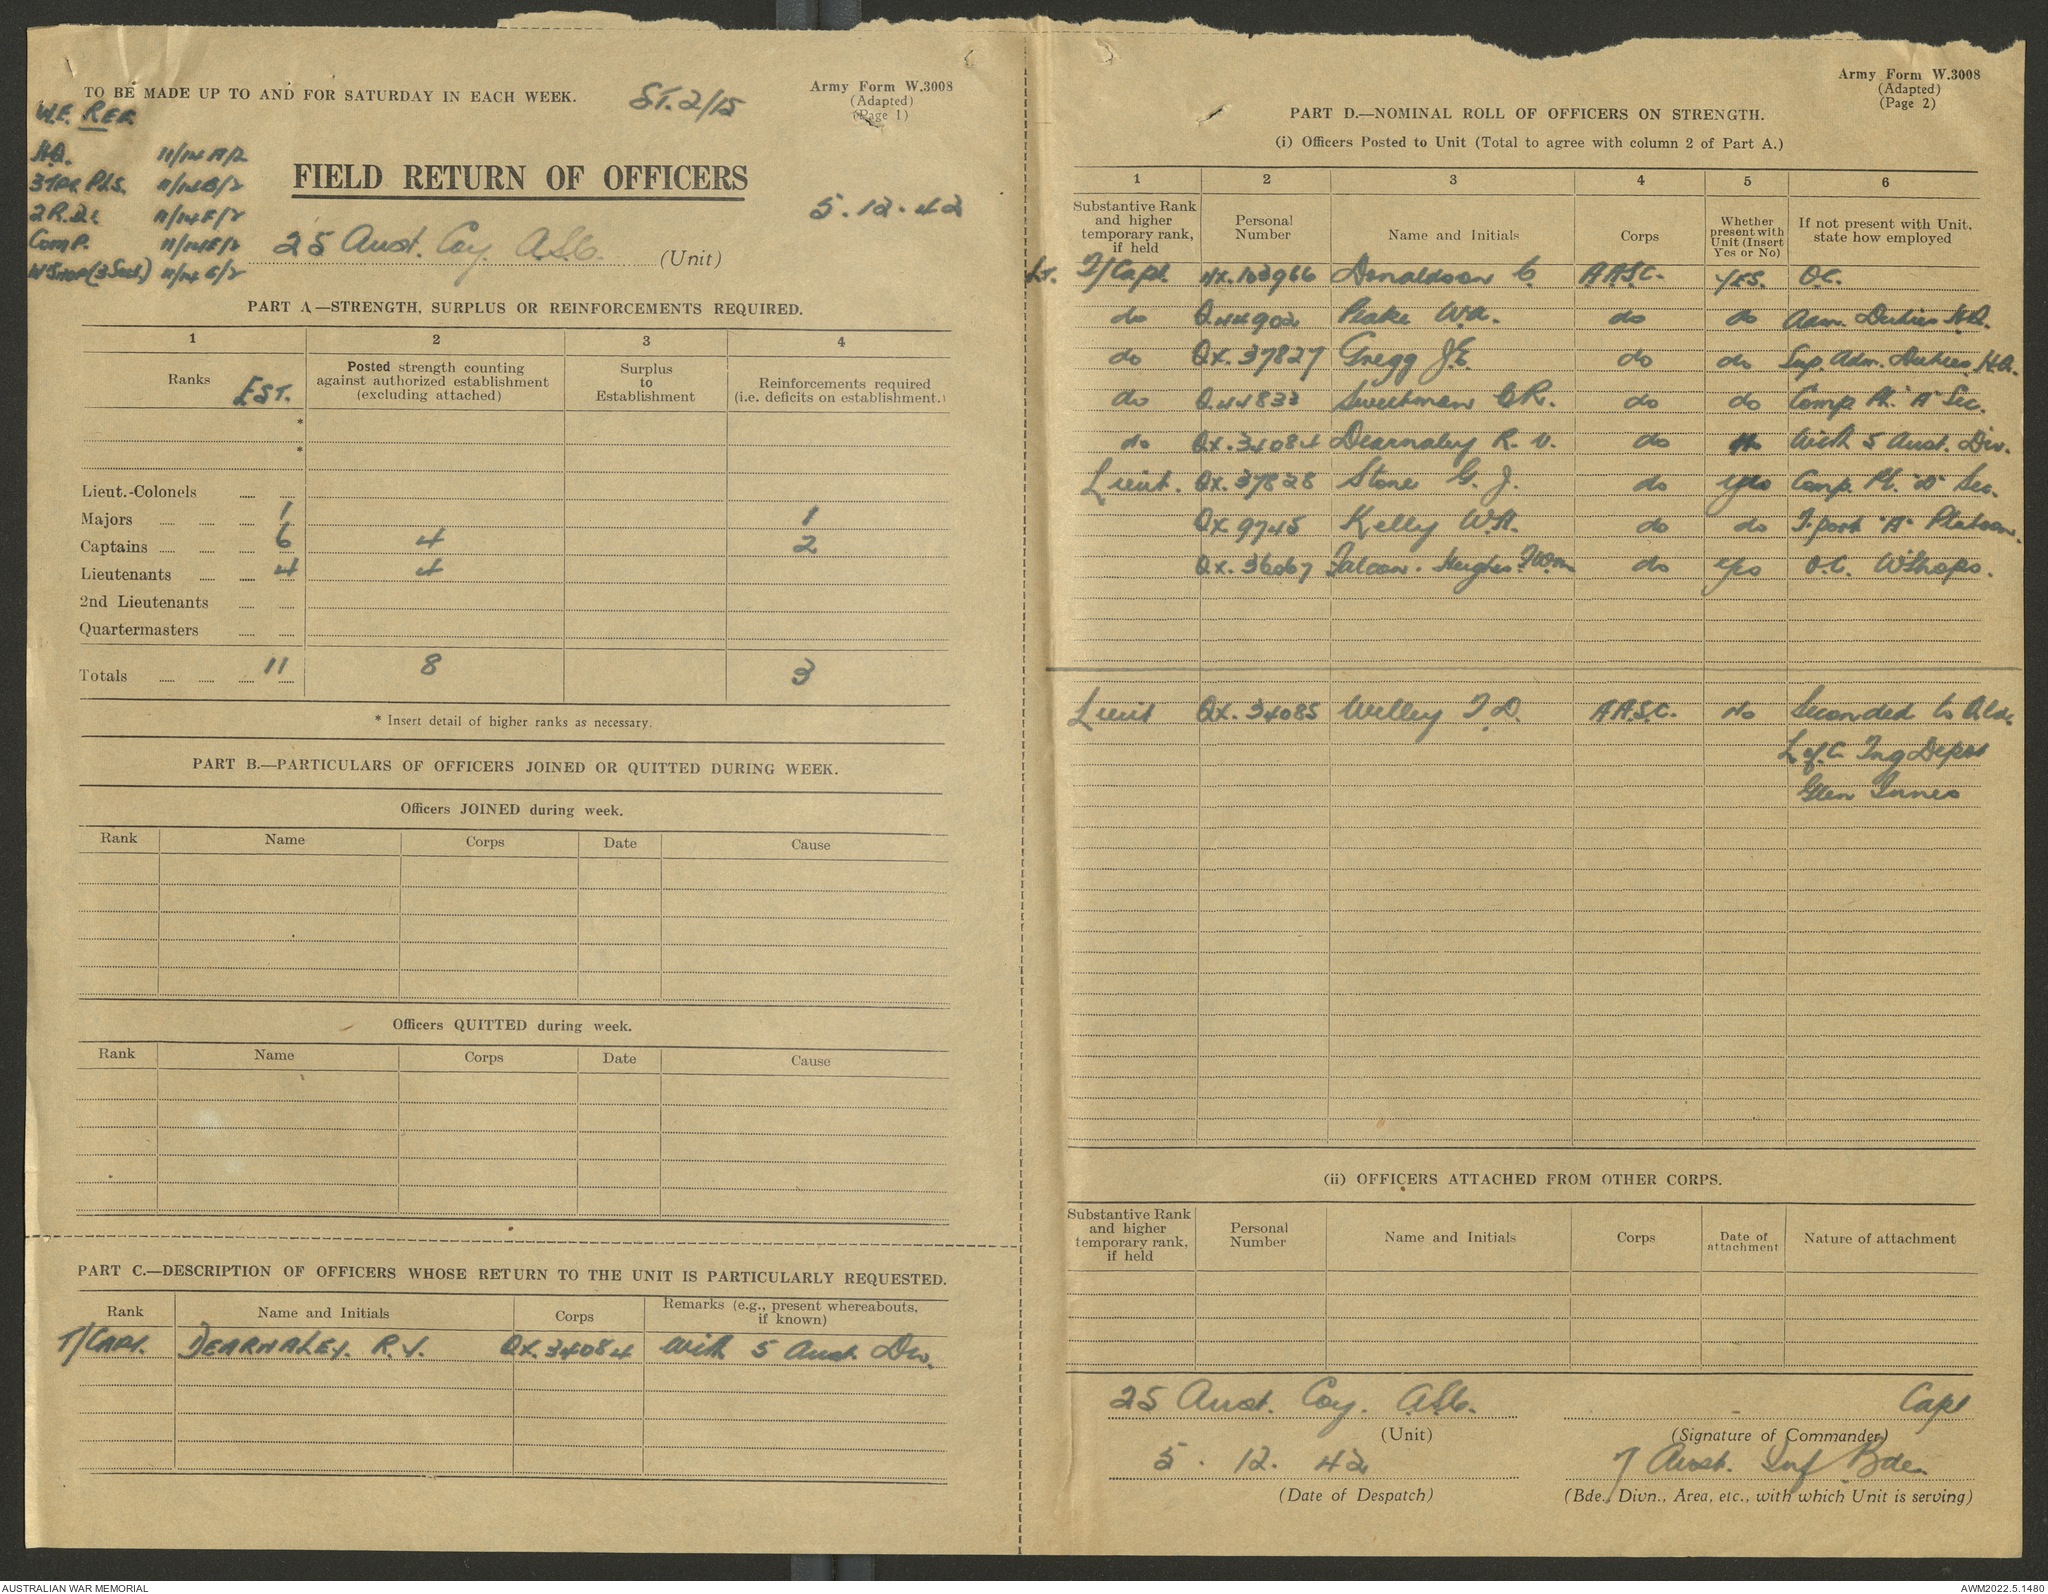 TO BE MADE UP TO AND FOR SATURDAY IN EACH WEEK.
ST. 2/15
Army Form W.3008
(Adapted)
(Page 1)
W.E. REF.
H.Q. 11/14 A/2
3 TPT. PLS. 11/14B/2
11/14F/2
COMP. 11/14E/2
W'SHOP (3 Secs.) 11/14 G/2
FIELD RETURN OF OFFICERS
5.12.42
25 Aust. Coy. ASC. (Unit)
PART A—STRENGTH, SURPLUS OR REINFORCEMENTS REQUIRED.
1 2 3 4
Ranks EST. Posted strength counting against authorized establishment (excluding attached) Surplus to Establishment Reinforcements required (i.e. deficits on establishment.)
*
*
Lieut.-Colonels
Majors 1 1
Captains 6 4 2
Lieutenants 4 4
2nd Lieutenants
Quartermasters
Totals 11 8 3
* Insert detail of higher ranks as necessary.
PART B.—PARTICULARS OF OFFICERS JOINED OR QUITTED DURING WEEK.
Officers JOINED during week.
Rank Name Corps Date Cause
Officers QUITTED during week.
Rank Name Corps Date Cause
PART C.—DESCRIPTION OF OFFICERS WHOSE RETURN TO THE UNIT IS PARTICULARLY REQUESTED.
Rank Name and Initials Corps Remarks (e.g., present whereabouts, if known)
T/CAPT. DEARNALEY. R.V. QX.34084 with 5 Aust. Div.
Army Form W.3008
(Adapted)
(Page 2)
PART D.—NOMINAL ROLL OF OFFICERS ON STRENGTH.
(i) Officers Posted to Unit (Total to agree with column 2 of Part A.)
1 2 3 4 5 6
Substantive Rank and higher temporary rank, if held Personal Number Name and Initials Corps Whether present with Unit (Insert Yes or No) If not present with Unit, state how employed
Lt. T/Capt. NX.103966 Donaldson C. A.A.S.C. YES. O.C.
do Q.44902 Peake W.A. do do Adm. Duties H.Q.
do QX.37827 Gregg J.E. do do Sup. Adm. Duties H.Q.
do Q.44833 Sweetman C.R. do do Comp. Pl. "A" Sec.
do QX.34084 Dearnaley R.V. do No With 5 Aust. Div.
Lieut. QX.37828 Stone G.J. do yes Comp. Pl. Sec.
QX.9745 Kelly W.H. do do T.port "A" Platoon.
QX.36067 Falcon-Hughes do yes O.C. W'Shops.
Lieut QX.34085 Willey T.D. A.A.S.C. No Seconded to Qld.
L of C Tng Depot
Glen Innes
(ii) OFFICERS ATTACHED FROM OTHER CORPS.
Substantive Rank and higher temporary rank, if held Personal Number Name and Initials Corps Date of attachment Nature of attachment
25 Aust. Coy. ASC. Capt
(Unit) (Signature of Commander)
5. 12. 42 7 Aust. Inf Bde.
(Date of Despatch) (Bde., Divn., Area, etc., with which Unit is serving)
AUSTRALIAN WAR MEMORIAL
AWM2022.5.1480